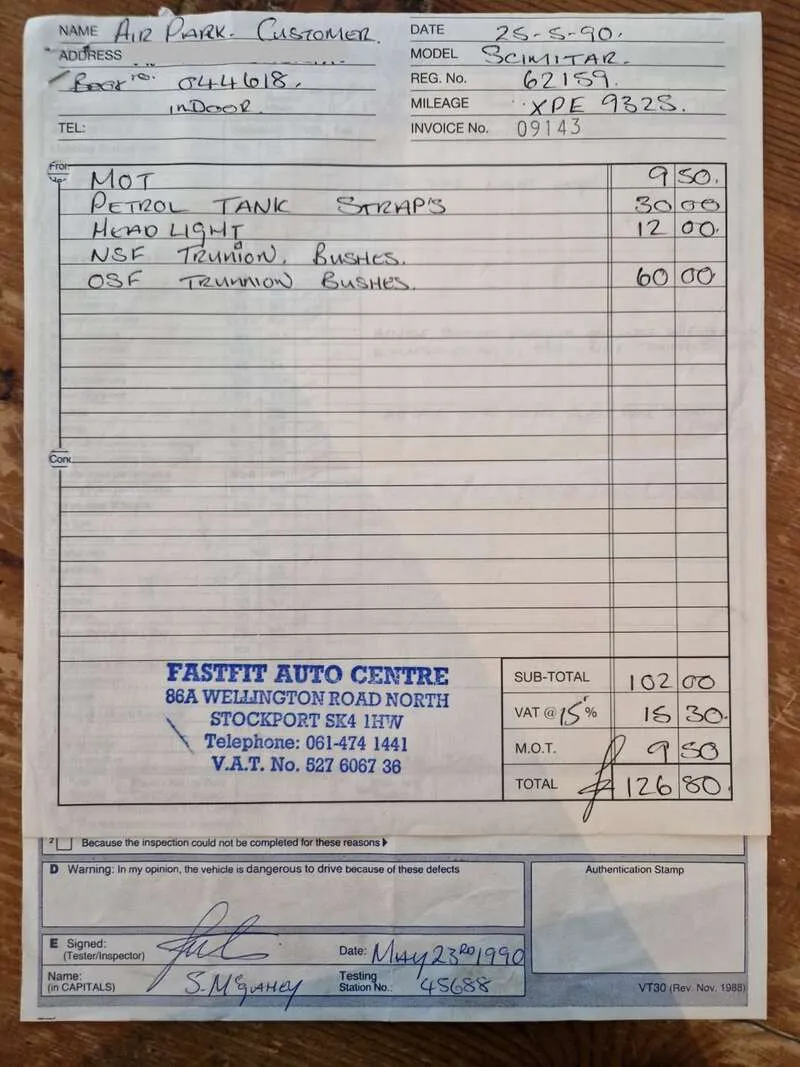 NAME AIR PARK. CUSTOMER.
DATE 25-5-90.
ADDRESS
MODEL SCIMITAR.
Book no. 044618.
REG. No. 62159.
INDOOR
MILEAGE XPE 932S.
TEL:
INVOICE No. 09143
MOT 9 50.
PETROL TANK STRAP'S 30 00
HEAD LIGHT 12 00.
NSF TRUNION. BUSHES.
OSF TRUNNION BUSHES. 60 00
Conc
FASTFIT AUTO CENTRE
86A WELLINGTON ROAD NORTH
STOCKPORT SK4 1HW
Telephone: 061-474 1441
V.A.T. No. 527 6067 36
SUB-TOTAL 102 00
VAT @ 15 % 15 30.
M.O.T. 9 50
TOTAL £ 126 80.
2 Because the inspection could not be completed for these reasons
D Warning: In my opinion, the vehicle is dangerous to drive because of these defects
Authentication Stamp
E Signed:
(Tester/Inspector)
Date: MAY 23RD 1990
Name:
(in CAPITALS) S. McGAHEY
Testing
Station No.: 45688
VT30 (Rev. Nov. 1988)